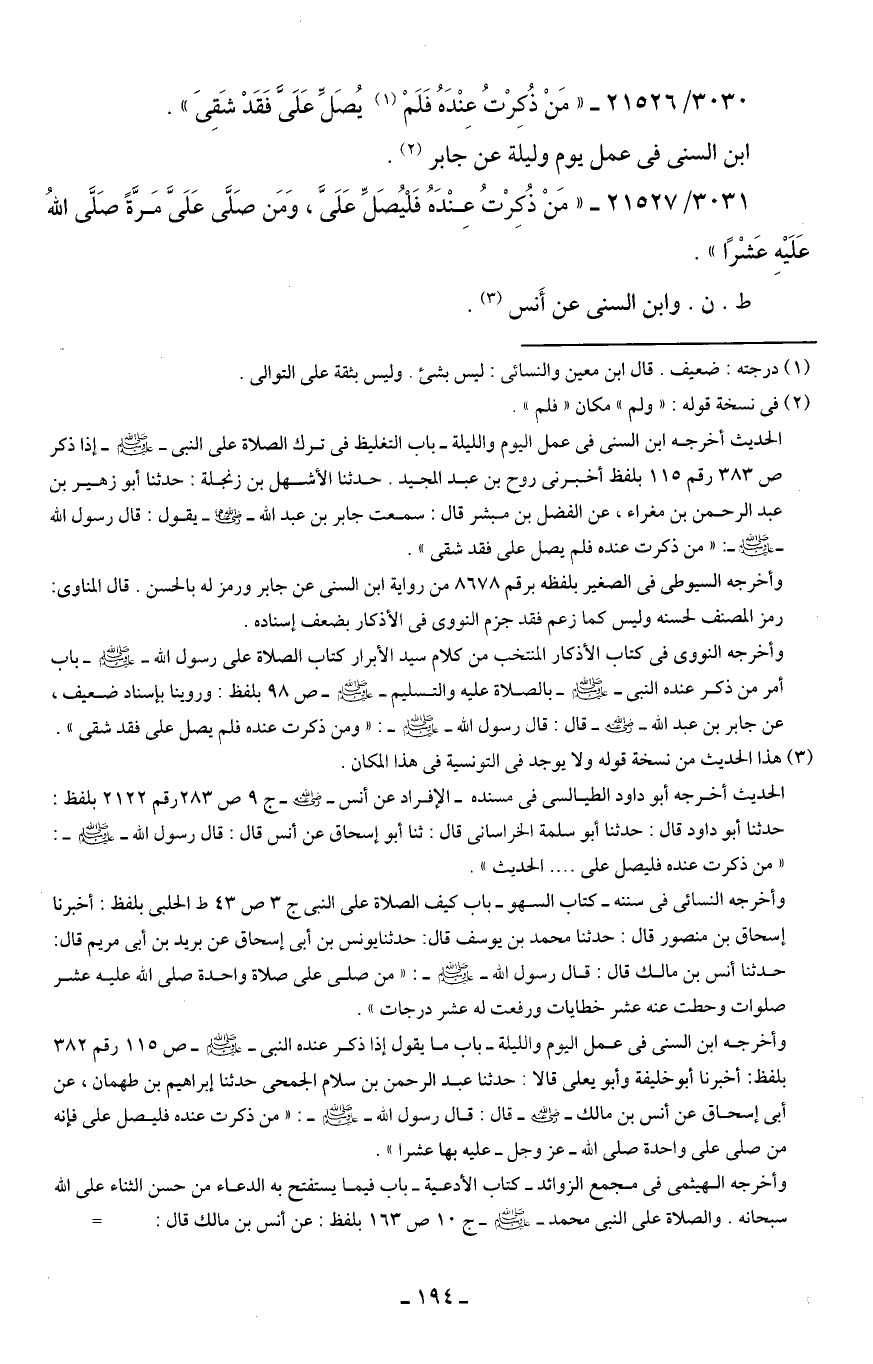 ٢١٥٢٦/٣٠٣٠ ـ « مَنْ ذُكِرْتُ عِنْدَهُ فَلَمْ (١) يُصَلِّ عَلَىَّ فَقَدْ شَقِىَ » .
ابن السنى فى عمل يوم وليلة عن جابر (٢) .
٢١٥٢٧/٣٠٣١ ـ « مَنْ ذُكِرْتُ عِـنْدَهُ فَلْيُصَلِّ عَلَىَّ ، وَمَن صَلَّى عَلَىَّ مَـرَّةً صَلَّى اللهُ
عَلَيْهِ عَشْرًا » .
ط . ن . وابن السنى عن أَنس (٣) .
(١) درجته : ضعيف . قال ابن معين والنسائى : ليس بشئ . وليس بثقة على التوالى .
(٢) فى نسخة قوله : « ولم » مكان « فلم » .
الحديث أخرجـه ابن السنى فى عمل اليوم والليلة ـ باب التغليظ فى تـرك الصلاة على النبى ـ ﷺ ـ إذا ذكر
ص ٣٨٣ رقم ١١٥ بلفظ أخـبرنى روح بن عبـد المجيـد . حـدثنا الأشـهل بن زنجـلة : حدثنا أبو زهيـر بن
عبد الرحـمن بن مغراء ، عن الفضل بن مـبشر قال : سمـعت جابر بن عبد الله ـ رضي الله عنهما ـ يقول : قال رسول الله
ـ ﷺ ـ: « من ذكرت عنده فلم يصل على فقد شقى » .
وأخرجه السيوطى فى الصغير بلفظه برقم ٨٦٧٨ من رواية ابن السنى عن جابر ورمز له بالحسن . قال المناوى:
رمز المصنف لحسنه وليس كما زعم فقد جزم النووى فى الأذكار بضعف إسناده .
وأخرجه النووى فى كتاب الأذكار المنتخب من كلام سيد الأبرار كتاب الصلاة على رسول الله ـ ﷺ ـ باب
أمر من ذكـر عنده النبى ـ ﷺ ـ بالصـلاة عليه والتـسليم ـ ﷺ ـ ص ٩٨ بلفظ : وروينا بإسناد ضـعيف ،
عن جابر بن عبد الله ـ رضي الله عنه ـ قال : قال رسول الله ـ ﷺ ـ : « ومن ذكرت عنده فلم يصل على فقد شقى » .
(٣) هذا الحديث من نسخة قوله ولا يوجد فى التونسية فى هذا المكان .
الحديث أخـرجه أبو داود الطيـالسى فى مسنده ـ الإفـراد عن أنس ـ رضي الله عنه ـ ج ٩ ص ٢٨٣رقم ٢١٢٢ بلفظ :
حدثنا أبو داود قال : حدثنا أبو سلمة الخراسانى قال : ثنا أبو إسحاق عن أنس قال : قال رسول الله ـ ﷺ ـ :
« من ذكرت عنده فليصل على .... الحديث » .
وأخرجه النسائى فى سننه ـ كتاب السـهو ـ باب كيف الصلاة على النبى ج ٣ ص ٤٣ ط الحلبى بلفظ : أخبرنا
إسحاق بن منصور قال : حدثنا محمد بن يوسف قال: حدثنايونس بن أبى إسحاق عن بريد بن أبى مريم قال:
حـدثنا أنس بن مالـك قال : قـال رسول الله ـ ﷺ ـ : « من صلـى على صلاة واحـدة صلى الله عليـه عشـر
صلوات وحطت عنه عشر خطايات ورفعت له عشر درجات » .
وأخرجـه ابن السنى فى عـمل اليوم والليلة ـ باب مـا يقول إذا ذكـر عنده النبى ـ ﷺ ـ ص ١١٥ رقم ٣٨٢
بلفظ: أخبرنا أبوخليفة وأبو يعلى قالا : حدثنا عبـد الرحمن بن سلام الجمحى حدثنا إبراهيم بن طهمان ، عن
أبى إسـحاق عن أنس بن مالك ـ رضي الله عنه ـ قال : قـال رسول الله ـ ﷺ ـ : « من ذكرت عنده فليـصل على فإنه
من صلى على واحدة صلى الله ـ عز وجل ـ عليه بها عشرا » .
وأخرجه الـهيثمى فى مـجمع الزوائد ـ كتاب الأدعـية ـ باب فيمـا يستفتح به الدعـاء من حسن الثناء على الله
سبحانه . والصلاة على النبى محمد ـ ﷺ ـ ج ١٠ ص ١٦٣ بلفظ : عن أنس بن مالك قال : =
ـ ١٩٤ ـ